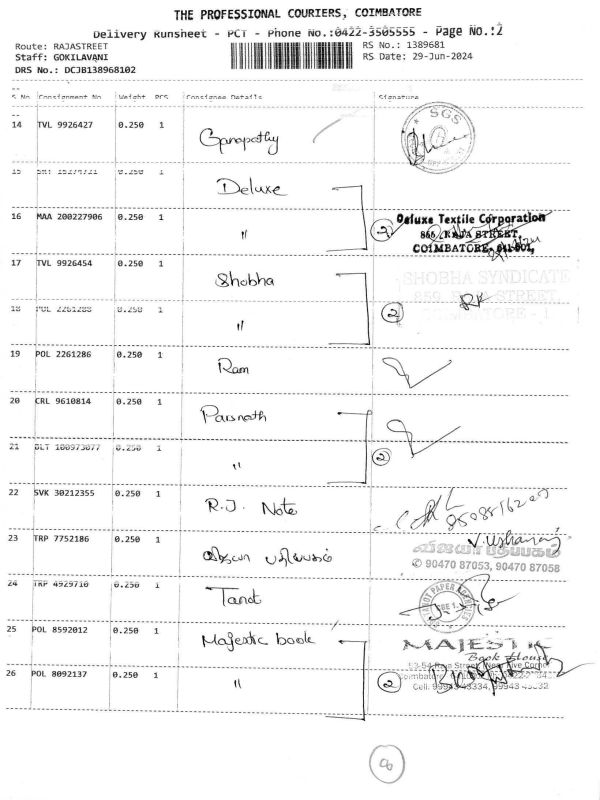 THE PROFESSIONAL COURIERS, COIMBATORE
Delivery Runsheet - PCT - Phone No.:0422-3505555 - Page No.:2
Route: RAJASTREET
RS No.: 1389681
Staff: GOKILAVANI
RS Date: 29-Jun-2024
DRS No.: DCJB138968102
S No Consignment No Weight PCS Consignee Details Signature
14 TVL 9926427 0.250 1 Ganapathy
SGS
15 0.250 1 Deluxe
16 MAA 200227906 0.250 1 "
2
Deluxe Textile Corporation
866, RAJA STREET,
COIMBATORE- 641 001.
17 TVL 9926454 0.250 1 Shobha
SHOBHA SYNDICATE
859, RAJA STREET,
COIMBATORE - 1
18 POL 2261288 0.250 1 "
2
19 POL 2261286 0.250 1 Ram
20 CRL 9610814 0.250 1 Parsnath
21 100973077 0.250 1 "
2
22 SVK 30212355 0.250 1 R.J. Note
23 TRP 7752186 0.250 1
✆ 90470 87053, 90470 87058
24 TRP 4929710 0.250 1 Tand
25 POL 8592012 0.250 1 Majestic book
MAJESTIC
Book House
26 POL 8092137 0.250 1 "
2